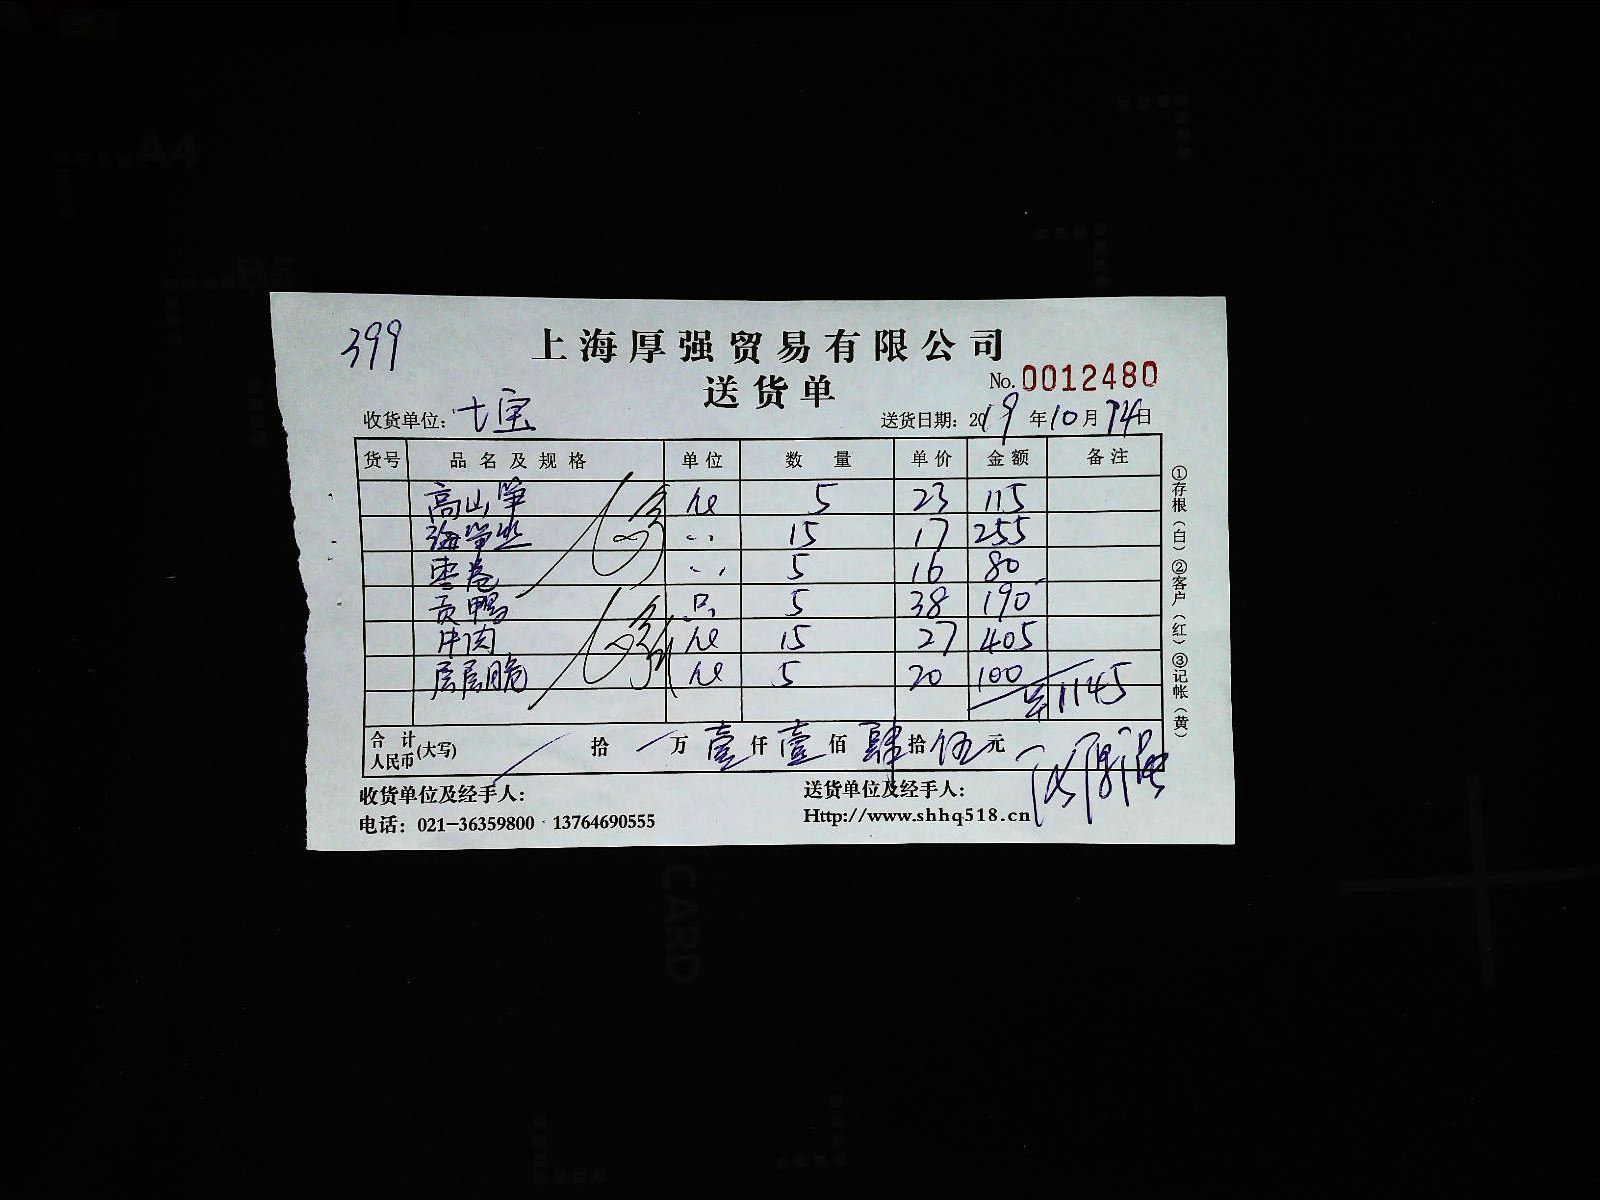 399
上海厚强贸易有限公司
送货单
No. 0012480
收货单位：七宝
送货日期：2019年10月14日
货号 品名及规格 单位 数量 单价 金额 备注
高山笋 5 23 115
海带丝 15 17 255
枣卷 5 16 80
贡鸭 只 5 38 190
牛肉 15 27 405
层层脆 5 20 100
1145
合计人民币(大写) 拾 万 壹仟 壹佰 肆拾 伍元
收货单位及经手人： 送货单位及经手人：
电话：021-36359800 13764690555 Http://www.shhq518.cn
①存根（白）②客户（红）③记帐（黄）
A4
B5
CARD